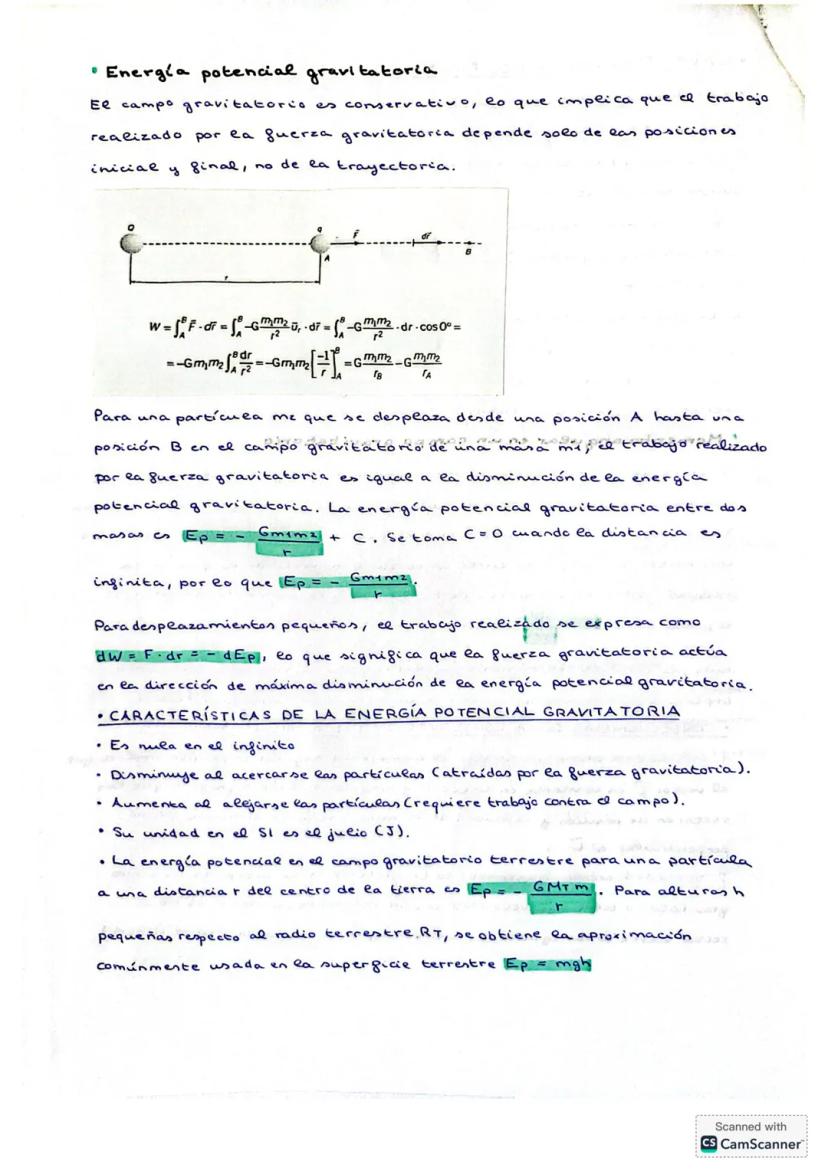 • Energía potencial gravitatoria
El campo gravitatorio es conservativo, lo que implica que el trabajo
realizado por la fuerza gravitatoria depende solo de las posiciones
inicial y final, no de la trayectoria.
Q q F dr
A B
r
W = ∫_A^B F · dr = ∫_A^B -G m₁m₂/r² u_r · dr = ∫_A^B -G m₁m₂/r² · dr · cos 0º =
= -Gm₁m₂ ∫_A^B dr/r² = -Gm₁m₂ [-1/r]_A^B = G m₁m₂/r_B - G m₁m₂/r_A
Para una partícula m2 que se desplaza desde una posición A hasta una
posición B en el campo gravitatorio de una masa m1, el trabajo realizado
por la fuerza gravitatoria es igual a la disminución de la energía
potencial gravitatoria. La energía potencial gravitatoria entre dos
masas es Ep = - Gm1m2/r + C. Se toma C=0 cuando la distancia es
infinita, por lo que Ep = - Gm1m2/r.
Para desplazamientos pequeños, el trabajo realizado se expresa como
dW = F · dr = - dEp, lo que significa que la fuerza gravitatoria actúa
en la dirección de máxima disminución de la energía potencial gravitatoria.
• CARACTERÍSTICAS DE LA ENERGÍA POTENCIAL GRAVITATORIA
• Es nula en el infinito
• Disminuye al acercarse las partículas (atraídas por la fuerza gravitatoria).
• Aumenta al alejarse las partículas (requiere trabajo contra el campo).
• Su unidad en el SI es el julio (J).
• La energía potencial en el campo gravitatorio terrestre para una partícula
a una distancia r del centro de la tierra es Ep = - GMT m/r. Para alturas h
pequeñas respecto al radio terrestre RT, se obtiene la aproximación
comúnmente usada en la superficie terrestre Ep = mgh
Scanned with
CS CamScanner